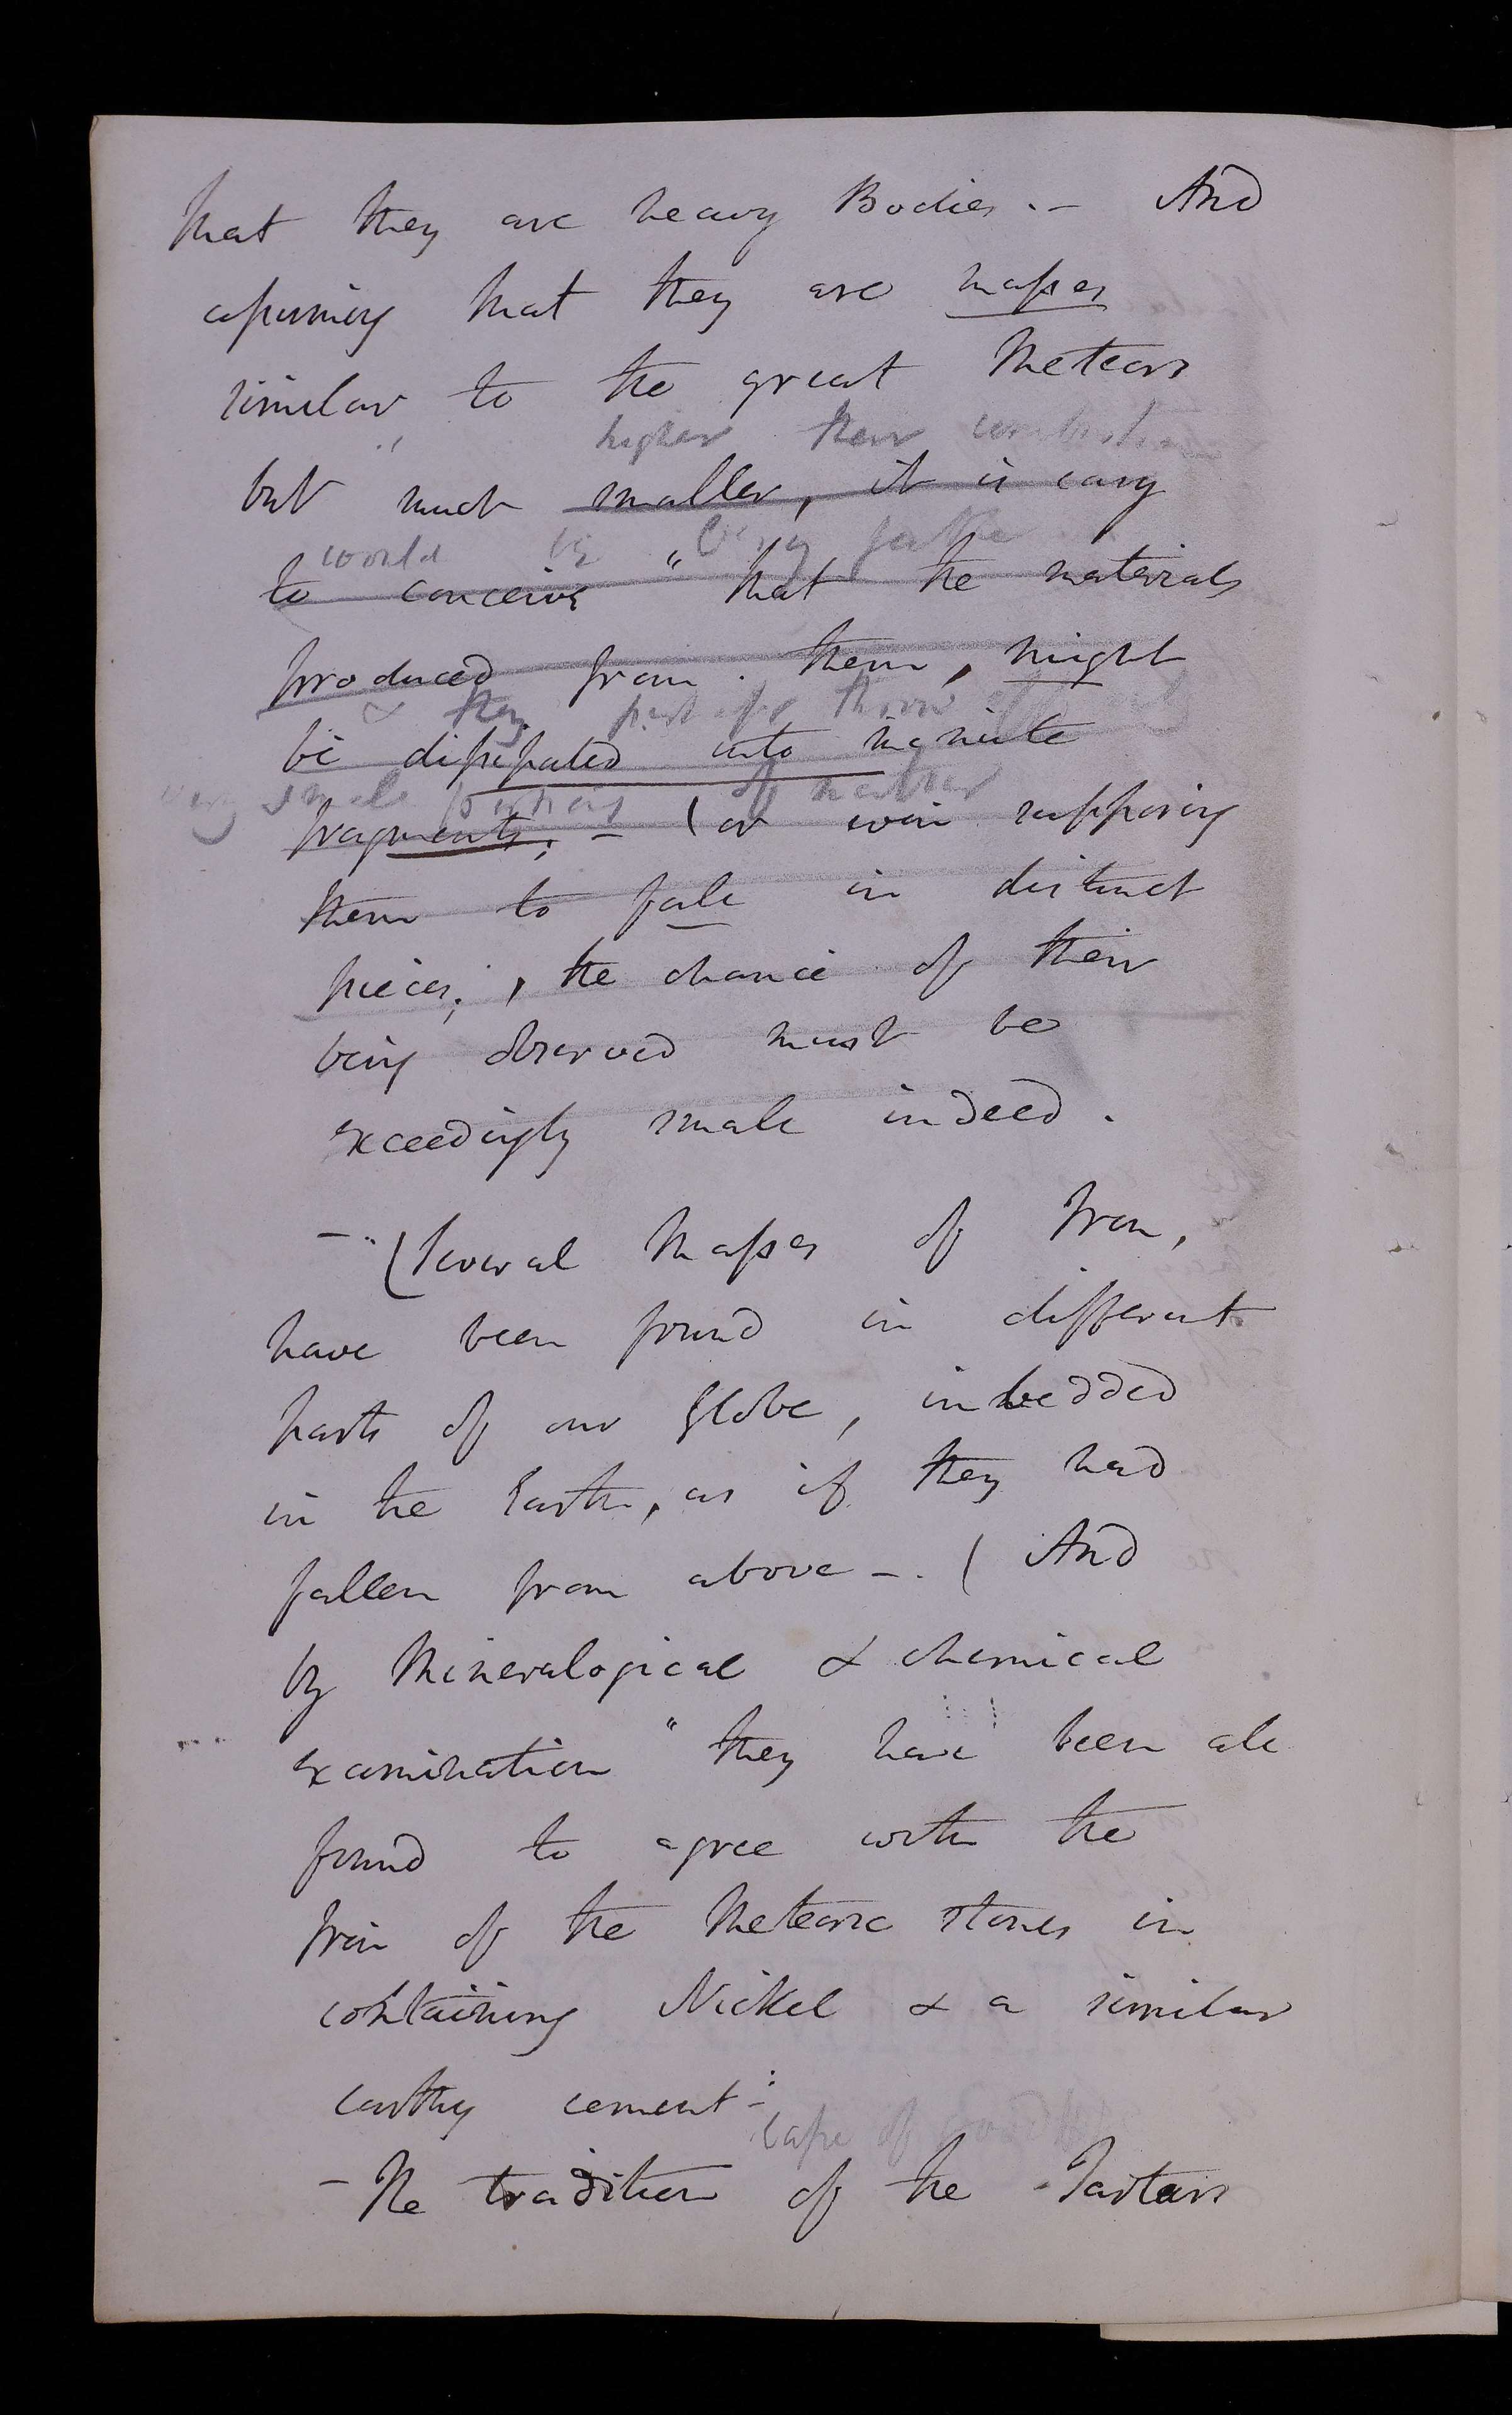 that they are heavy Bodies. – And
assuming that they are masses
similar to the great Meteors
higher their combustion
but much smaller, it is easy
would be being
to conceive " that the materials
produced from them, might
& they
be dissipated into minute
very small portions of matter
fragments; – (or even supposing
them to fall in distinct
pieces;, the chance of their
being observed must be
exceedingly small indeed.
– (Several Masses of Iron,
have been found in different
parts of our Globe, imbedded
in the Earth, as if they had
fallen from above –. ( And
by Mineralogical & chemical
examination " they have been all
found to agree with the
Iron of the Meteoric stones in
containing Nickel & a similar
earthy cement –
Cape of Good
– The tradition of the Tartars